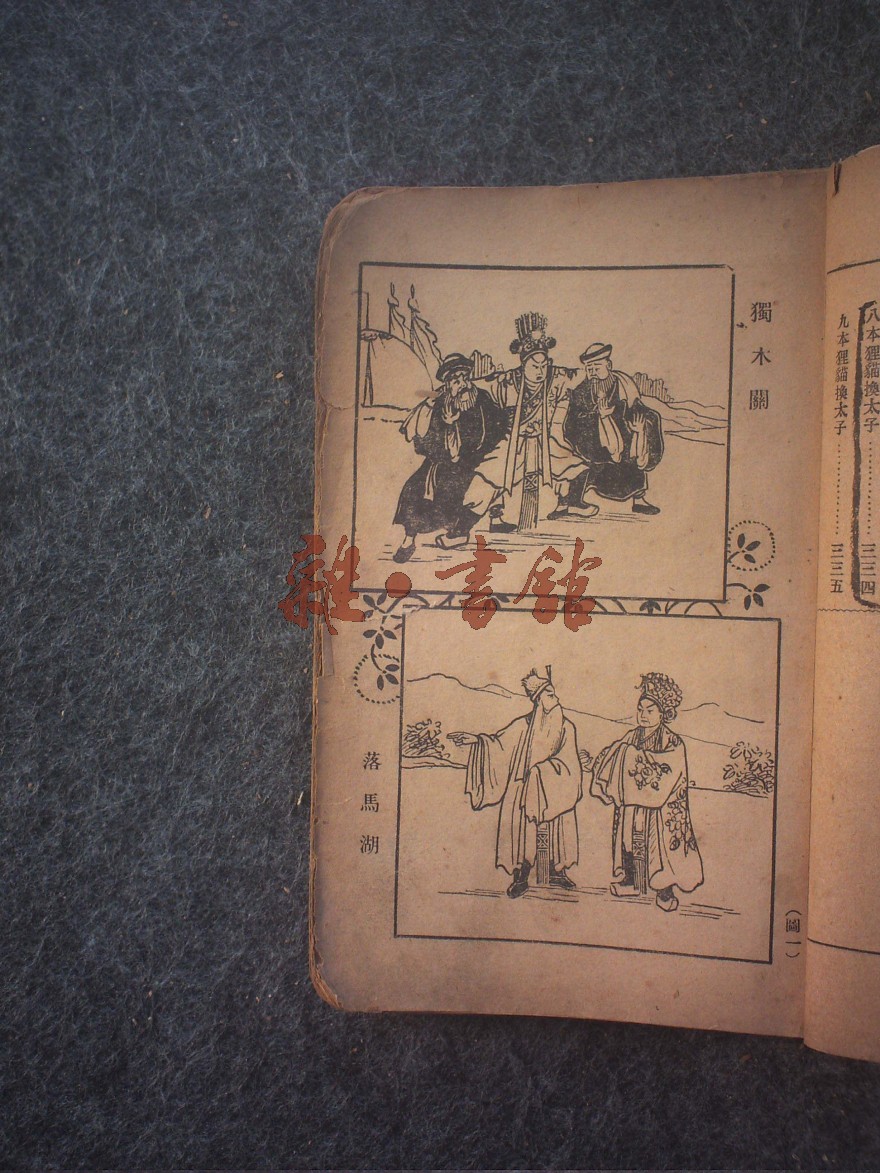 八本狸貓換太子……………三三四
九本狸貓換太子……………三三五
獨木關
雜·書館
落馬湖
(圖一)